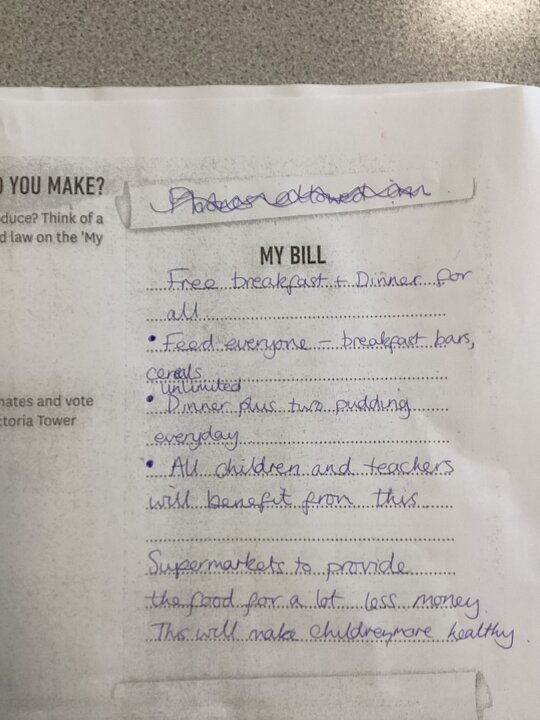 O YOU MAKE?
oduce? Think of a
d law on the 'My
nates and vote
ctoria Tower
MY BILL
Free breakfast + Dinner for
all
• Feed everyone – breakfast bars,
cereals
unlimited
• Dinner plus two pudding
everyday
• All children and teachers
will benefit from this
Supermarkets to provide
the food for a lot less money
This will make children more healthy.